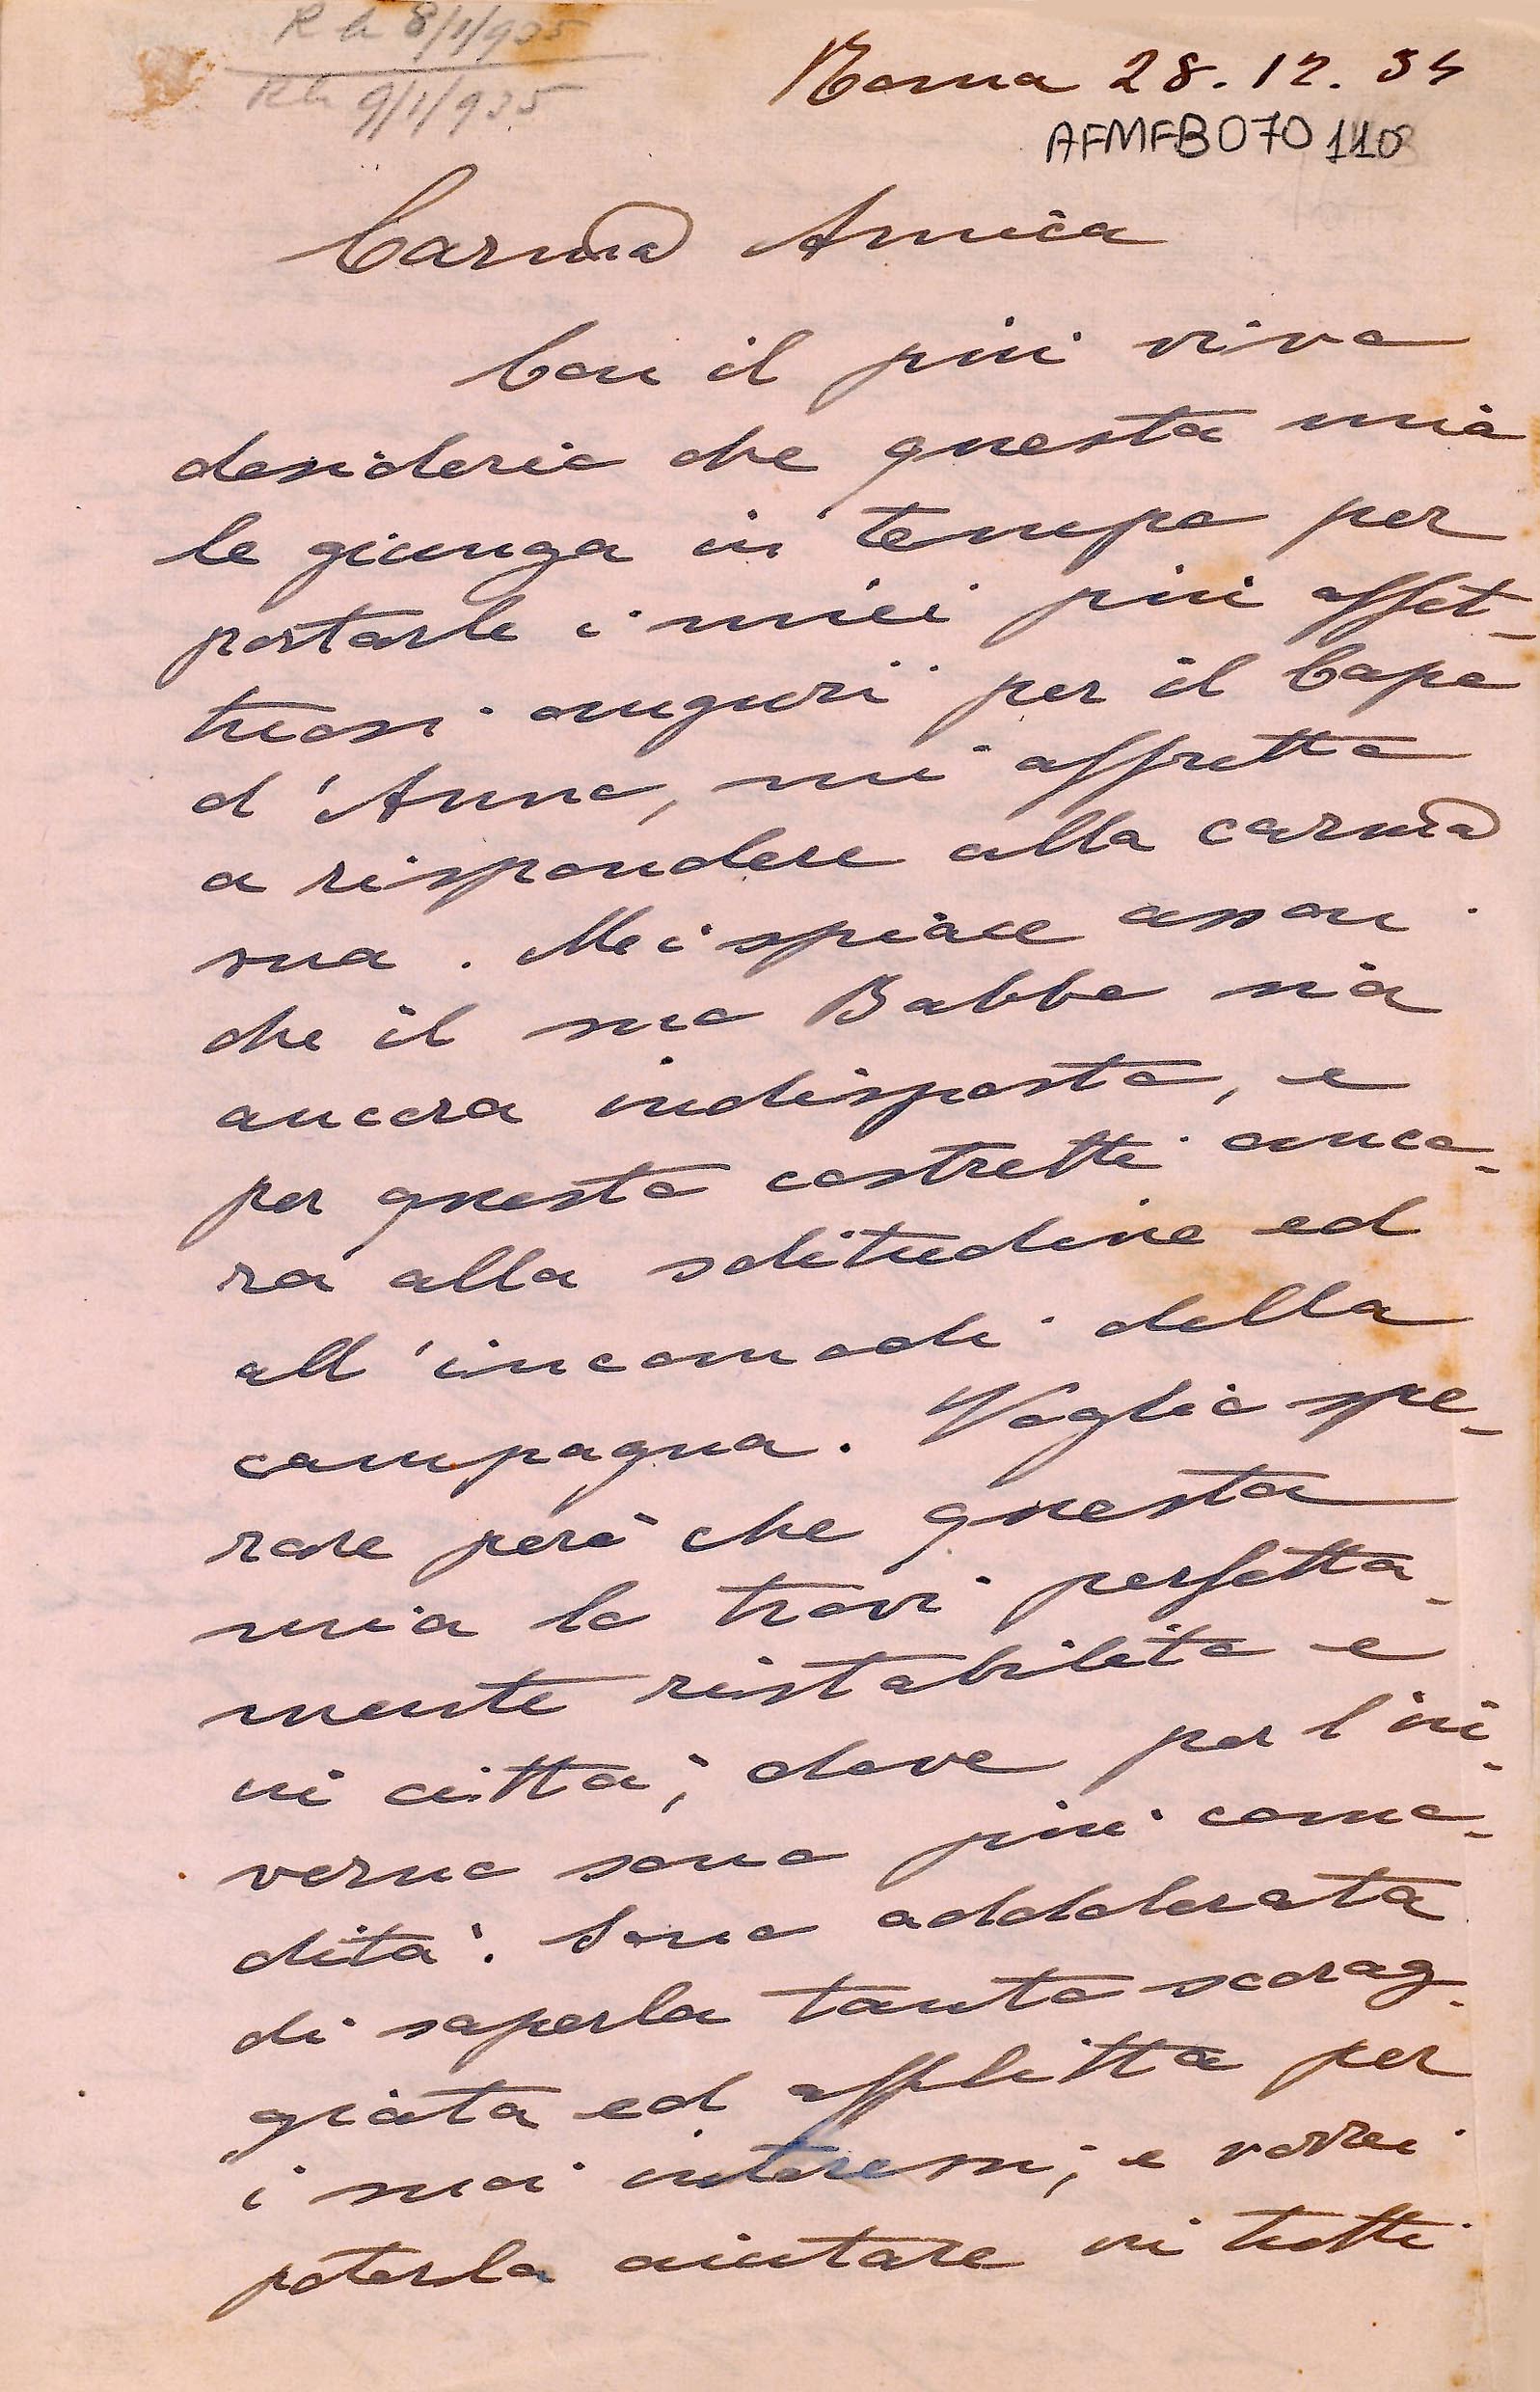 R la 8/1/935
R la 9/1/935
Roma 28. 12. 34
AFMFB070 110
Carma Amica
Con il più vivo
desiderio che questa mia
le giunga in tempo per
portarle i miei più affet-
tuosi auguri per il Capo
d'Anno, mi affretto
a rispondere alla carma
sua. Mi spiace assai
che il suo Babbo sia
ancora indisposto, e
per questo costretti anco-
ra alla solitudine ed
all'incomodi della
campagna. Voglio spe-
rare però che questa
mia lo trovi perfetta-
mente ristabilito e
in città; dove per l'in-
verno sono più como-
dità. Sono addolorata
di saperla tanto scorag-
giata ed afflitta per
i suoi interessi; e vorrei
poterla aiutare in tutti